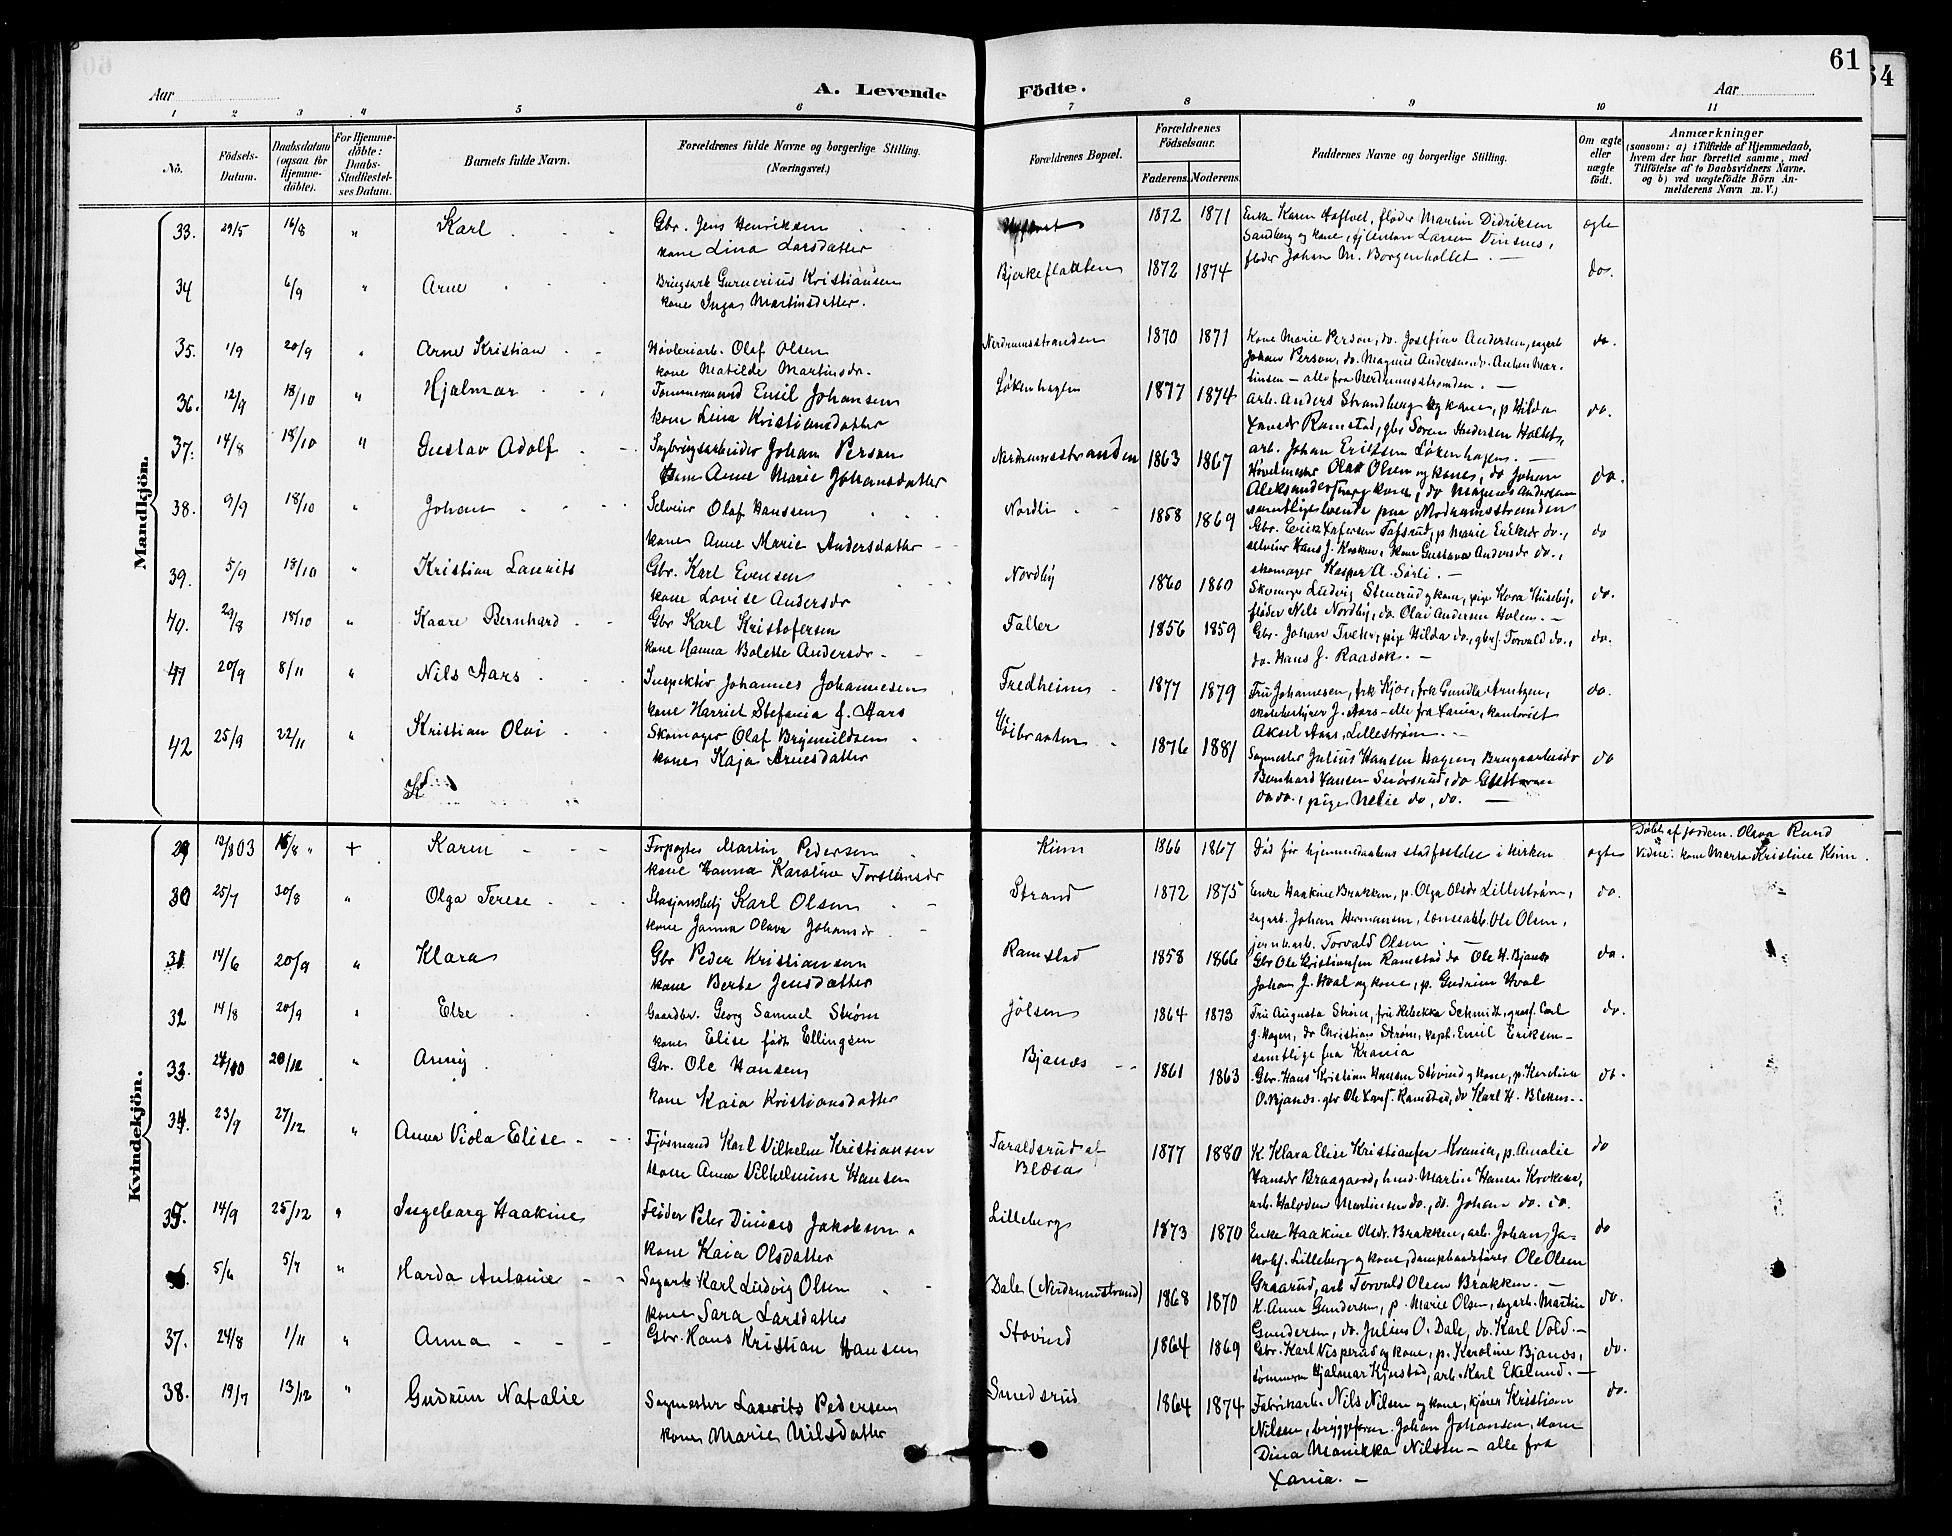 61
64
Aar
A. Levende Födte.
Aar
1 2 3 4 5 6 7 8 9 10 11
No.
Födsels-Datum.
Daabsdatum (ogsaa for Hjemme-döbte).
For Hjemme-döbte: Daabs-Stadfæstel-ses Datum.
Barnets fulde Navn.
Forældrenes fulde Navne og borgerlige Stilling. (Næringsvei.)
Forældrenes Bopæl.
Forældrenes Födselsaar.
Faderens. Moderens.
Faddernes Navne og borgerlige Stilling.
Om ægte eller uægte födt.
Anmærkninger
(saasom: a) i Tilfælde af Hjemmedaab, hvem der har forrettet samme, med Tilföielse af to Daabsvidners Navne, og b) ved uægtefödte Börn An-melderens Navn m. V.)
Mandkjön.
33. 29/5 16/8 " Karl Gbr. Jens Henriksen 1872 1871 Enke Karen Aaftvet, fløder Martin Didriksen ægte
kone Lina Larsdatter Sandberg og kone, Larsen Vinsnes,
fløder Johan M. Borgenholtet. —
34 6/9 " Arne Brugsarb Gunerius Kristiansen Bjerkeflaatten 1872 1874 do.
kone Inga Martinsdatter.
35. 1/9 20/9 " Arne Kristian Høvleriarb. Olaf Olsen Nerdrumsstranden 1870 1871 Kone Marie Person, do. Josefine Andersen, sagarb do.
kone Matilde Martinsdr. Johan Person, do. Magnus Andersen do. Anton Mar-
tinsen — alle fra Nerdrumsstranden. —
36. 12/9 18/10 " Hjalmar Tømmermand Emil Johansen Løkenhagen 1877 1874 arb. Anders Strandberg og kone, p Hilda do.
kone Lina Kristiansdatter Ramstad, gbr Søren Andersen Holtet,
arb. Johan Eriksen Løkenhagen. —
37. 14/8 18/10 " Gustav Adolf Sagbrugsarbeider Johan Person Nerdrumsstranden 1863 1867 Høvelmester Olaf Olsen og kone, do Johan do.
kone Anne Marie Johansdatter og kone, do Magnus Andersen
38. 9/9 18/10 " Johan Selveier Olaf Hanssen Nordli 1858 1869 Gbr. p Marie do., do
kone Anne Marie Andersdatter selveier Hans J. kone Gustava Andersdr do.,
skomager Kasper A. Sørli. —
39. 5/9 18/10 " Kristian Lauritz Gbr. Karl Evensen Nordby 1860 1860 Skomager Ludvig Stenerud og kone, pige Huseby, do.
kone Lovise Andersdr fløder Nils Nordby, do. Olai Andersen Holen. —
40. 29/8 18/10 " Kaare Bernhard Gbr Karl Kristofersen Faller 1856 1859 Gbr. Johan pige Hilda do., gbrs. Torvald do., do.
kone Hanna Bolette Andersdr do. Hans J. Raasok. —
41 20/9 8/11 " Nils Aars Inspektør Johannes Johannesen Fredheim 1877 1879 Fru Johannesen, frk Kjær, frk Gunda Arntzen, do.
kone Harriet Stefania f. Aars skolebestyrer J. Aars — alle fra Xania, kontorist
Aksel Aars, Lillestrøm. —
42 25/9 22/11 " Kristian Olai Skomager Olaf Brynildsen Høibraaten 1876 1881 Sagmester Julius Hansen Hagen, Brugsarbeider do
kone Kaja Arnesdatter Bernhard Hansen do
do do., pige do, do. —
Kvindekjön.
29 12/8 03 15/8 " + Karen Forpagter Martin Pedersen Kinn 1866 1867 Død før hjemmedaabens stadfæstelse i kirken ægte Døbt af jordem. Olava Rund
kone Hanna Karoline Torstensdr Vidne: kone Marta Kristine Kinn.
30 25/7 30/8 " Olga Terese Stasjonsbetj Karl Olsen Strand 1872 1875 Enke Haakine Brakken, p. Olga Olsdr Lillestrøm, do.
kone Janna Olava Johansdr sagarb. Johan Hermansen, Ole Olsen,
jernb.arb. Torvald Olsen. —
31 14/6 20/9 " Klara Gbr Peder Kristiansen Ramstad 1858 1866 Gbr Ole Kristiansen Ramstad do Ole H. Bjanæs do.
kone Berte Jensdatter Johan J. Hval og kone, p. Gudrun Hval
32 14/8 20/9 " Else Gaardbr. Georg Samuel Strøm Jølsen 1864 1873 Fru Augusta Strøm, fru Rebekka Schmidt, Carl do.
kone Elise født Ellingsen J. Hagen, do Christian Strøm, kapt. Emil Eriksen —
samtlige fra Krania
33. 24/10 20/12 " Anny Gbr. Ole Hansen Bjanæs 1861 1863 Gbr. Hans Kristian Hansen Støvind og kone, p. Karoline do.
kone Kaia Kristiansdatter O. Bjanæs. gbr Ole Ramstad, do Karl H.
34. 23/9 27/12 " Anna Viola Elise Fjøsmand Karl Vilhelm Kristiansen Taraldsrud af Blæsa 1877 1880 K. Klara Elise Kristiansen Krania, p. Amalie do
kone Anna Vilhelmine Hansen Hansdr Braagaard, Martin Hansen
arb. Halvdan Martinsen do., do. Johan do. do.
35. 14/9 25/12 " Ingeborg Haakine Fløder Peter Dines Jakobsen Lilleberg 1873 1870 Enke Haakine Olsdr. Brakken, arb. Johan Ja- do
kone Kaia Olsdatter kobs. Lilleberg og kone, dampbaadfører Ole Olsen
Graarud, arb Torvald Olsen Brakken. —
5/6 5/7 " Harda Antonie Sagarb Karl Ludvig Olsen Dalen (Nerdrumstrand) 1868 1870 K. Anna Gundersen, p. Marie Olsen, sagarb. Martin do.
kone Sara Larsdatter Gundersen, do. Julius O. Dale, do. Karl Vold. —
37. 24/8 1/11 " Anna Gbr. Hans Kristian Hansen Støvind 1864 1869 Gbr. Karl Nisperud og kone, p. Karoline Bjanæs, do.
Hjalmar Kjustad, arb. Karl Ekelund. —
38. 19/7 13/12 " Gudrun Natalie Sagmester Lauritz Pedersen Smedsrud 1864 1874 Fabrikarb. Nils Nilsen og kone, kjører Kristian do.
kone Marie Nilsdatter Nilsen, bryggeform. Johan Johansen, kone
Dina Monikka Nilsen — alle fra
Xania. —